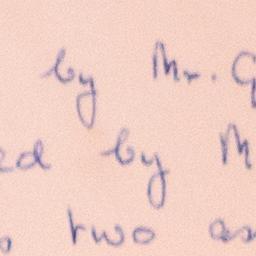 by Mr. G
ed by M
two as